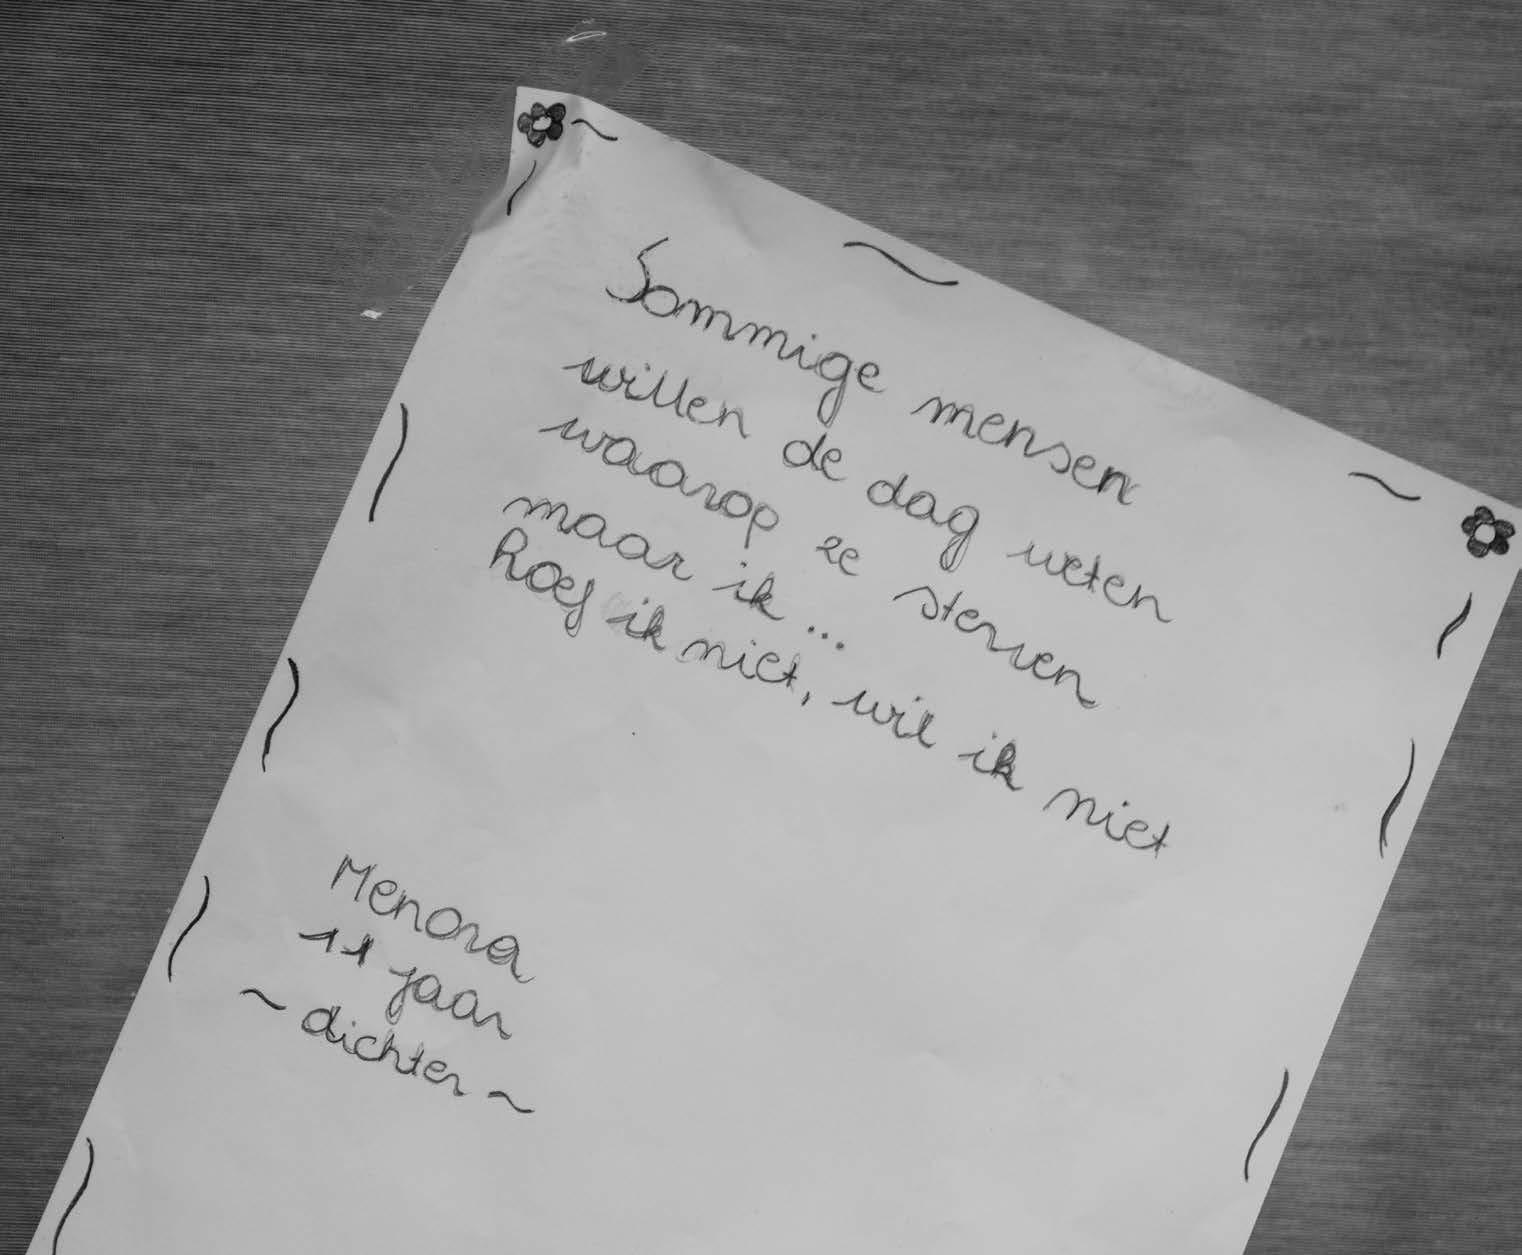 Sommige mensen
willen de dag weten
waarop ze sterven
maar ik...
hoef ik niet, wil ik niet
Menora
11 jaar
~ dichter ~